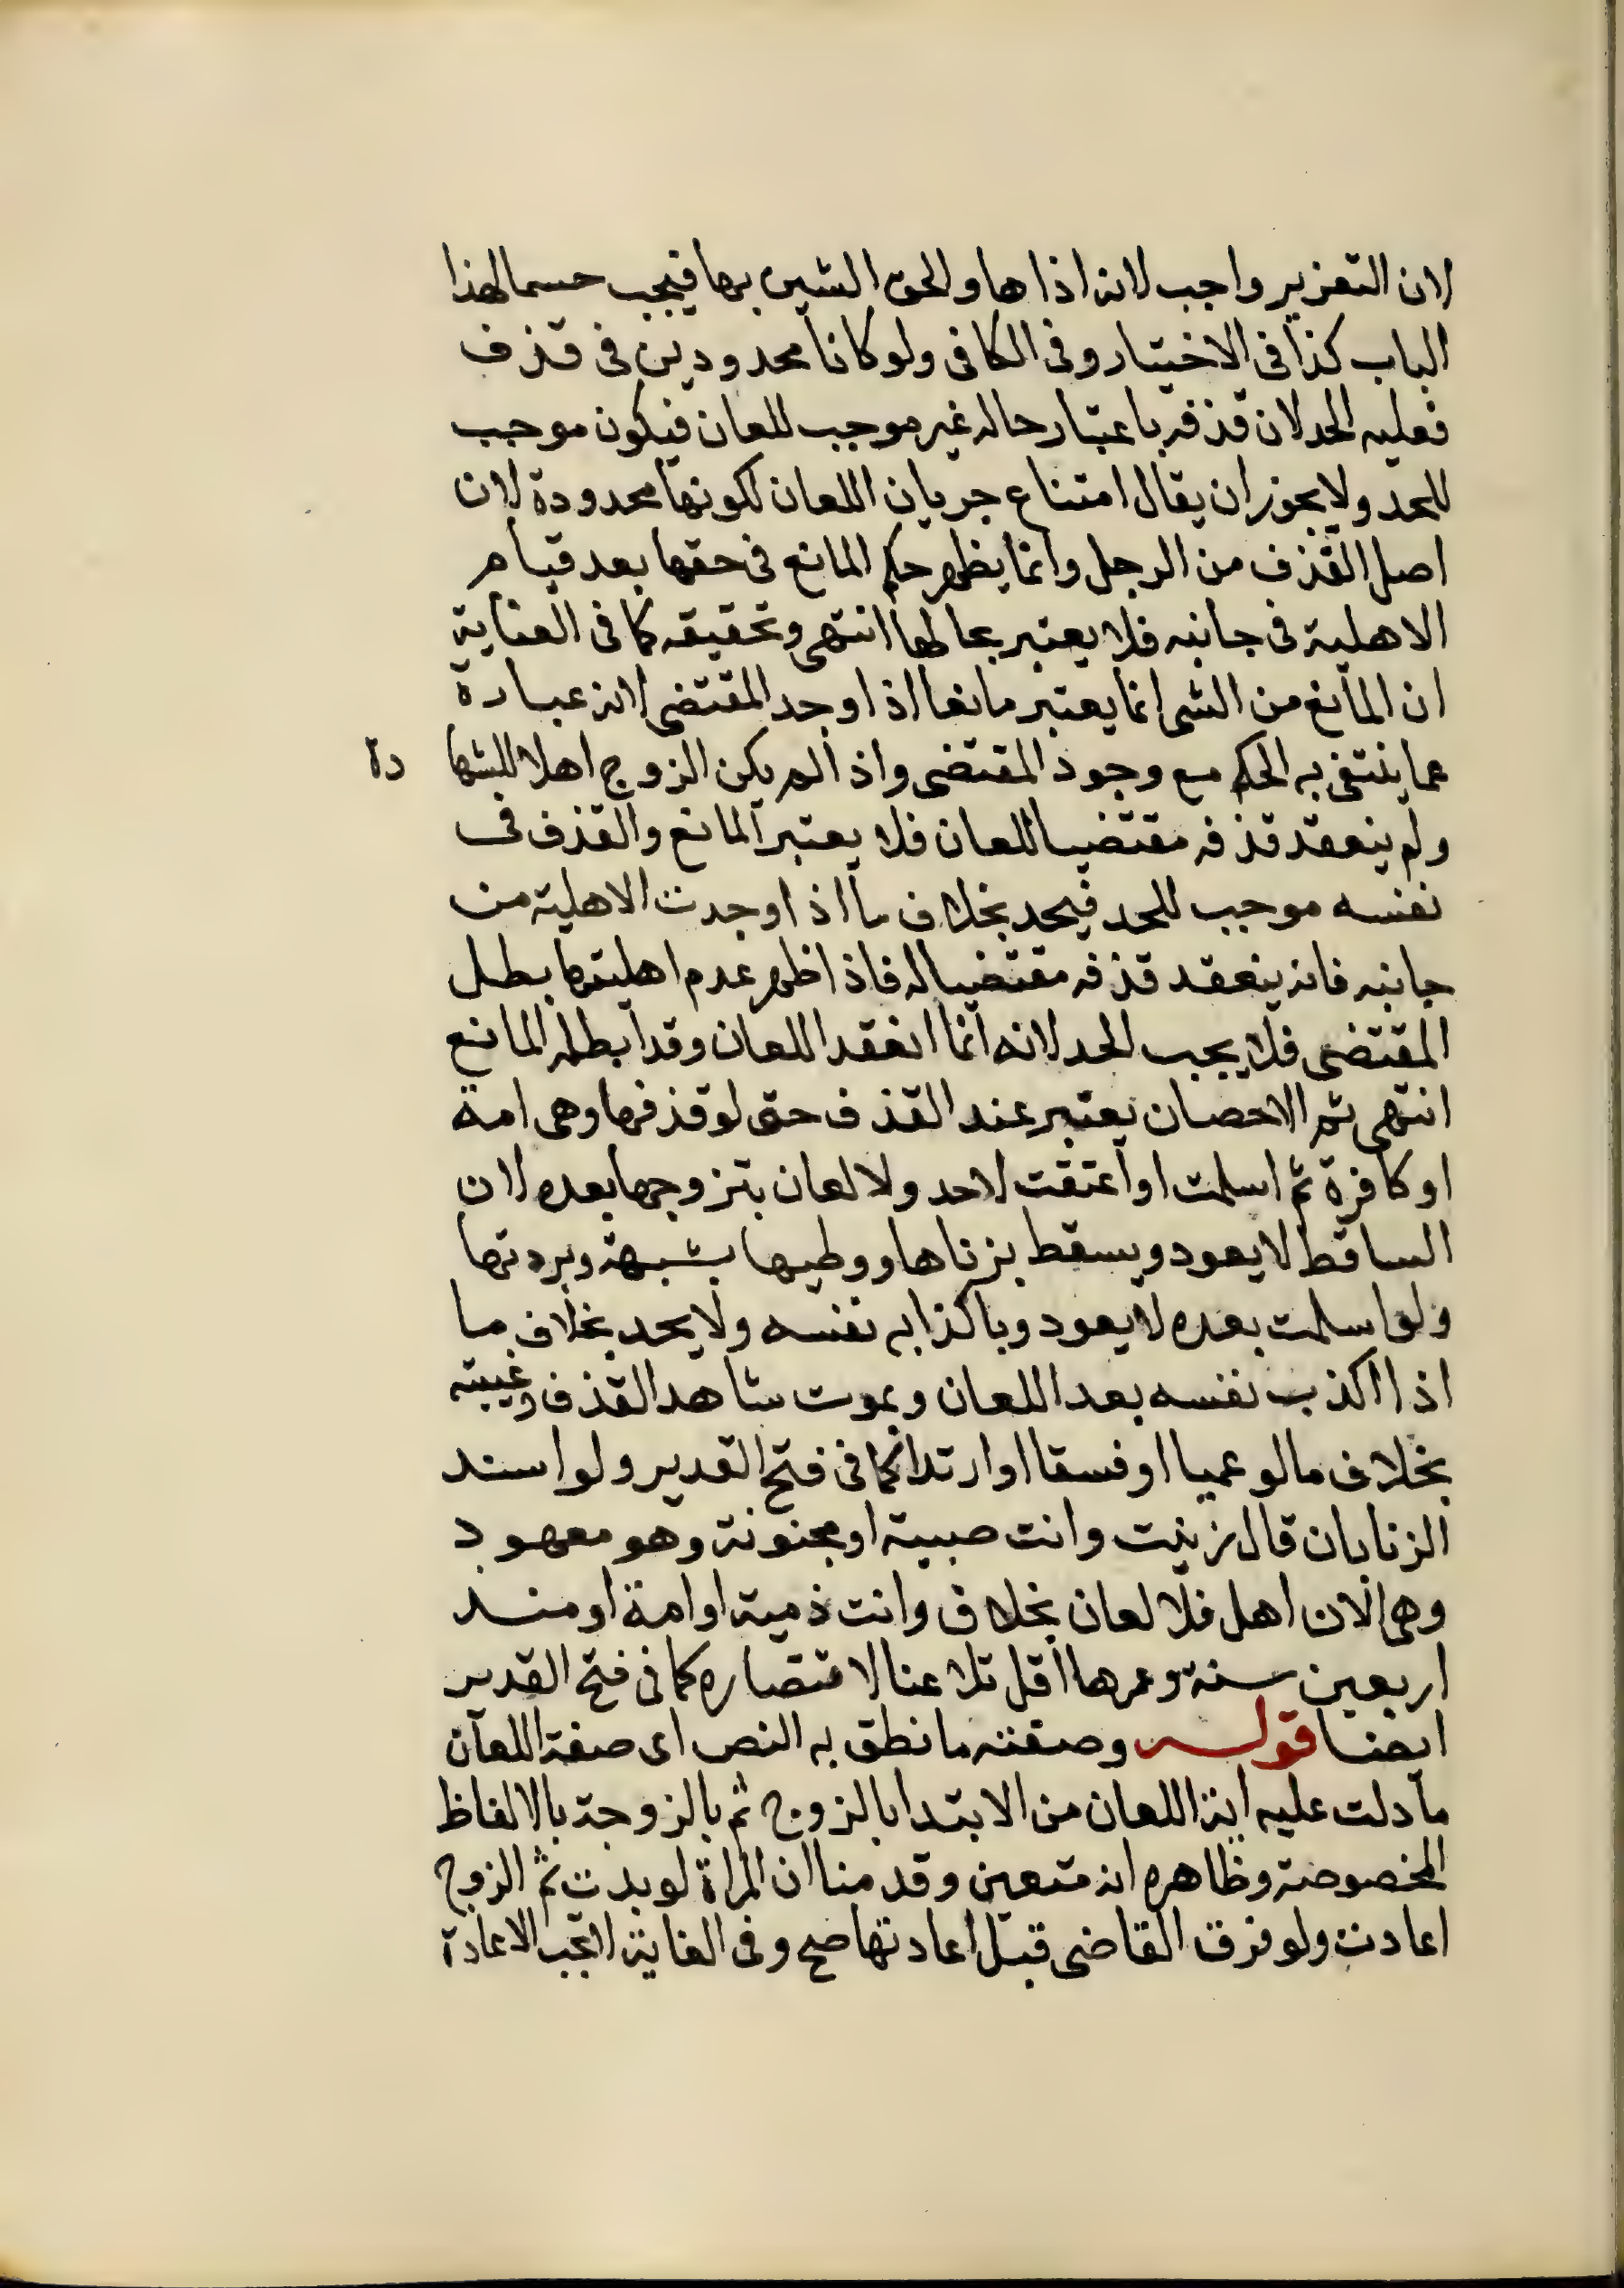 لان التعزير واجب لانه اذاها والحق الشين بها فيجب حسما لهذا
الباب كذا فى الاختيار وفى الكافى ولو كانا محدودين فى قذف
فعليه الحد لان قذفه باعتبار حاله غير موجب للعان فيكون موجب
للحد ولا يجوز ان يقال امتناع جريان اللعان لكونها محدودة لان
اصل القذف من الرجل وانما يظهر حكم المانع فى حقها بعد قيام
الاهلية فى جانبه فلا يعتبر بحالها انتهى وتحقيقه كما فى العناية
ان المانع من الشى انما يعتبر مانعا اذا وجد المقتضى لانه عبارة
عما ينتفى به الحكم مع وجود المقتضى واذا لم يكن الزوج اهلا للشها دة
ولم ينعقد قذفه مقتضيا للعان فلا يعتبر المانع والقذف فى
نفسه موجب للحد فيحد بخلاف ما اذا وجدت الاهلية من
جانبه فانه ينعقد قذفه مقتضيا له فاذا ظهر عدم اهليتها بطل
المقتضى فلا يجب الحد لانه انما انعقد اللعان وقد ابطله المانع
انتهى ثم الاحصان يعتبر عند القذف حتى لو قذفها وهى امة
او كافرة ثم اسلمت او اعتقت لا حد ولا لعان بتزوجها بعده لان
الساقط لا يعود ويسقط بزناها ووطيها بشبهة وبردتها
ولو اسلمت بعده لا يعود وباكذابه نفسه ولا يحد بخلاف ما
اذا اكذب نفسه بعد اللعان وبموت شاهد القذف وغيبته
بخلاف ما لو عميا او فسقا او ارتدا كما فى فتح القدير ولو اسند
الزنا بان قال زنيت وانت صبية او مجنونة وهو معهود
وهى الان اهل فلا لعان بخلاف وانت ذمية او امة او منذ
اربعين سنة وعمرها اقل تلاعنا لاقتصاره كما فى فتح القدير
ايضا قوله وصفته ما نطق به النص اى صفة اللعان
ما دلت عليه اية اللعان من الابتدا بالزوج ثم بالزوجة بالالفاظ
المخصوصة وظاهره انه متعين وقدمنا ان المراة لو بدت ثم الزوج
اعادت ولو فرق القاضى قبل اعادتها صح وفى الغاية لا تجب الاعادة